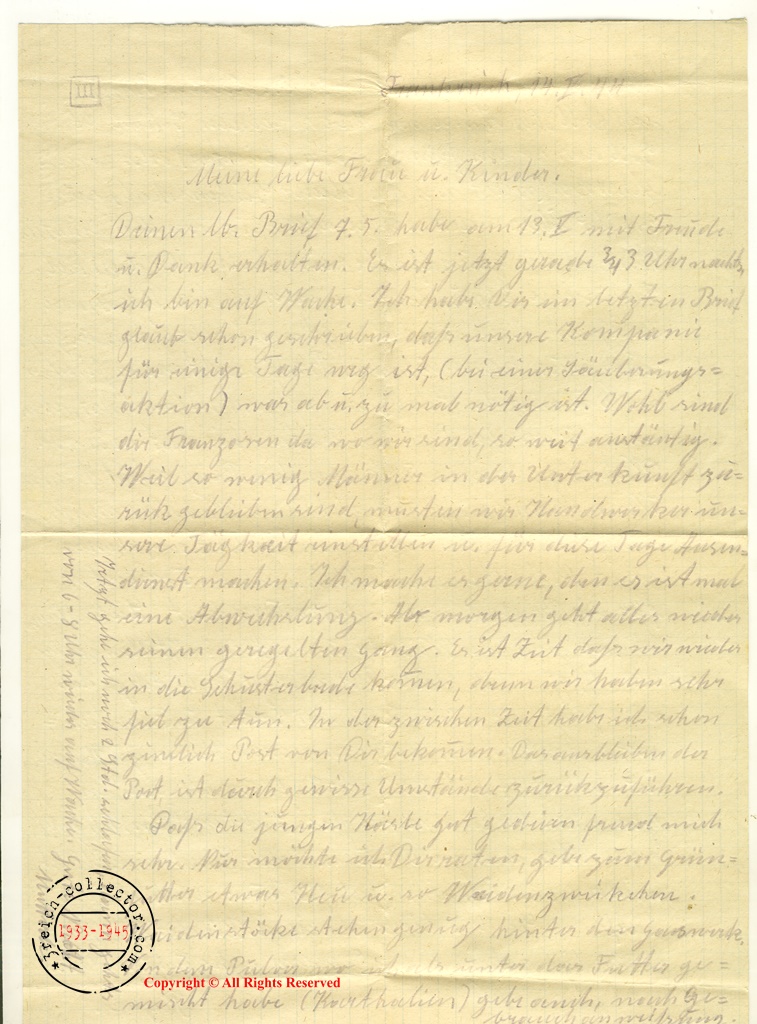 III
Frankreich, 14.V.44
Meine liebe Frau u. Kinder.
Deinen lb. Brief 7.5. habe am 13.V mit Freude
u. Dank erhalten. Es ist jetzt gerade 3/4 3 Uhr nachts,
ich bin auf Wache. Ich habe Dir im letzten Brief
glaub schon geschrieben, dass unsere Kompanie
für einige Tage weg ist, (bei einer Säuberungs=
aktion) was ab u. zu mal nötig ist. Wohl sind
die Franzosen da wo wir sind, so weit anständig.
Weil so wenig Männer in der Unterkunft zu=
rük geblieben sind, musten wir Handwerker un=
sere Tägkeit einstellen u. für diese Tage Ausen=
dienst machen. Ich mache es gerne, den es ist mal
eine Abwechslung. Ab morgen geht alles wieder
seinen geregelten gang. Es ist Zeit dass wir wieder
in die Schusterbude komen, denn wir haben sehr
fiel zu tun. In der zwischen Zeit habe ich schon
zimlich Post von Dir bekomen. Das ausbleiben der
Post, ist durch gewisse Umstände zurükzuführen.
Dass die jungen Hasle gut gedeien freud mich
sehr. Nur möchte ich Dir raten, gebe zum Grün=
futter etwas Heu u. so Weidenzweikchen.
Weidenstöcke stehen genug hinter dem gaswerk.
den Pulver wo ich unter das Futter ge=
mischt habe () gebe auch, nach Ge=
brauchanweissung.
Jetzt gehe ich noch 2 Std. schlafen
von 6-8 Uhr wieder auf Wache.
3reich-collector.com
1933-1945
Copyright © All Rights Reserved